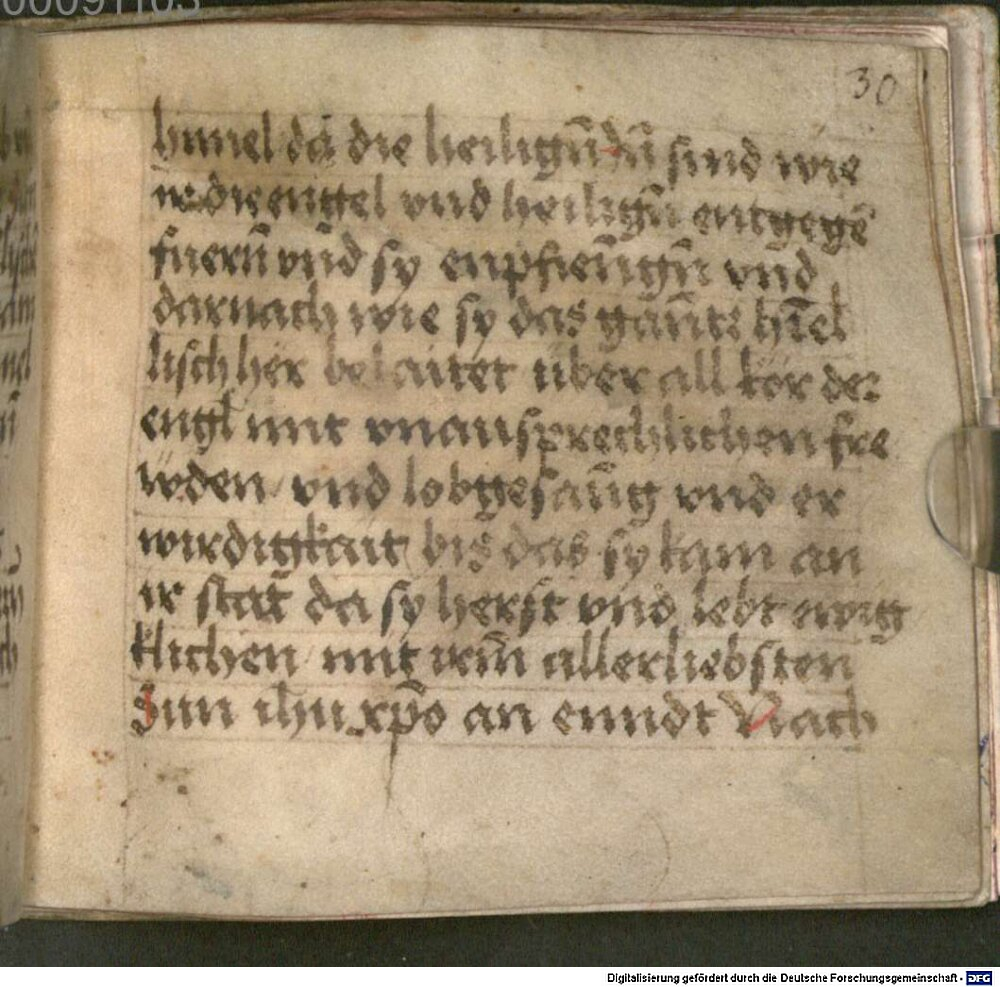 30
himel da die heiligñ dñ sind wie
ir die engel vnd heiligñ entgegē
fuerñ vnd sy enpfiengñ vnd
darnach wie sy das gantz hīel
lisch her belaitet über all kör der
engl mit vnaussprechlichen fre
wden vnd lobgesang vnd er
wirdigkait bis das sy kam an
ir stat da sy herst vnd lebt ewig
klichen mit irm allerliebsten
Sun ihu xp̄o an enndt Nach
Digitalisierung gefördert durch die Deutsche Forschungsgemeinschaft - DFG